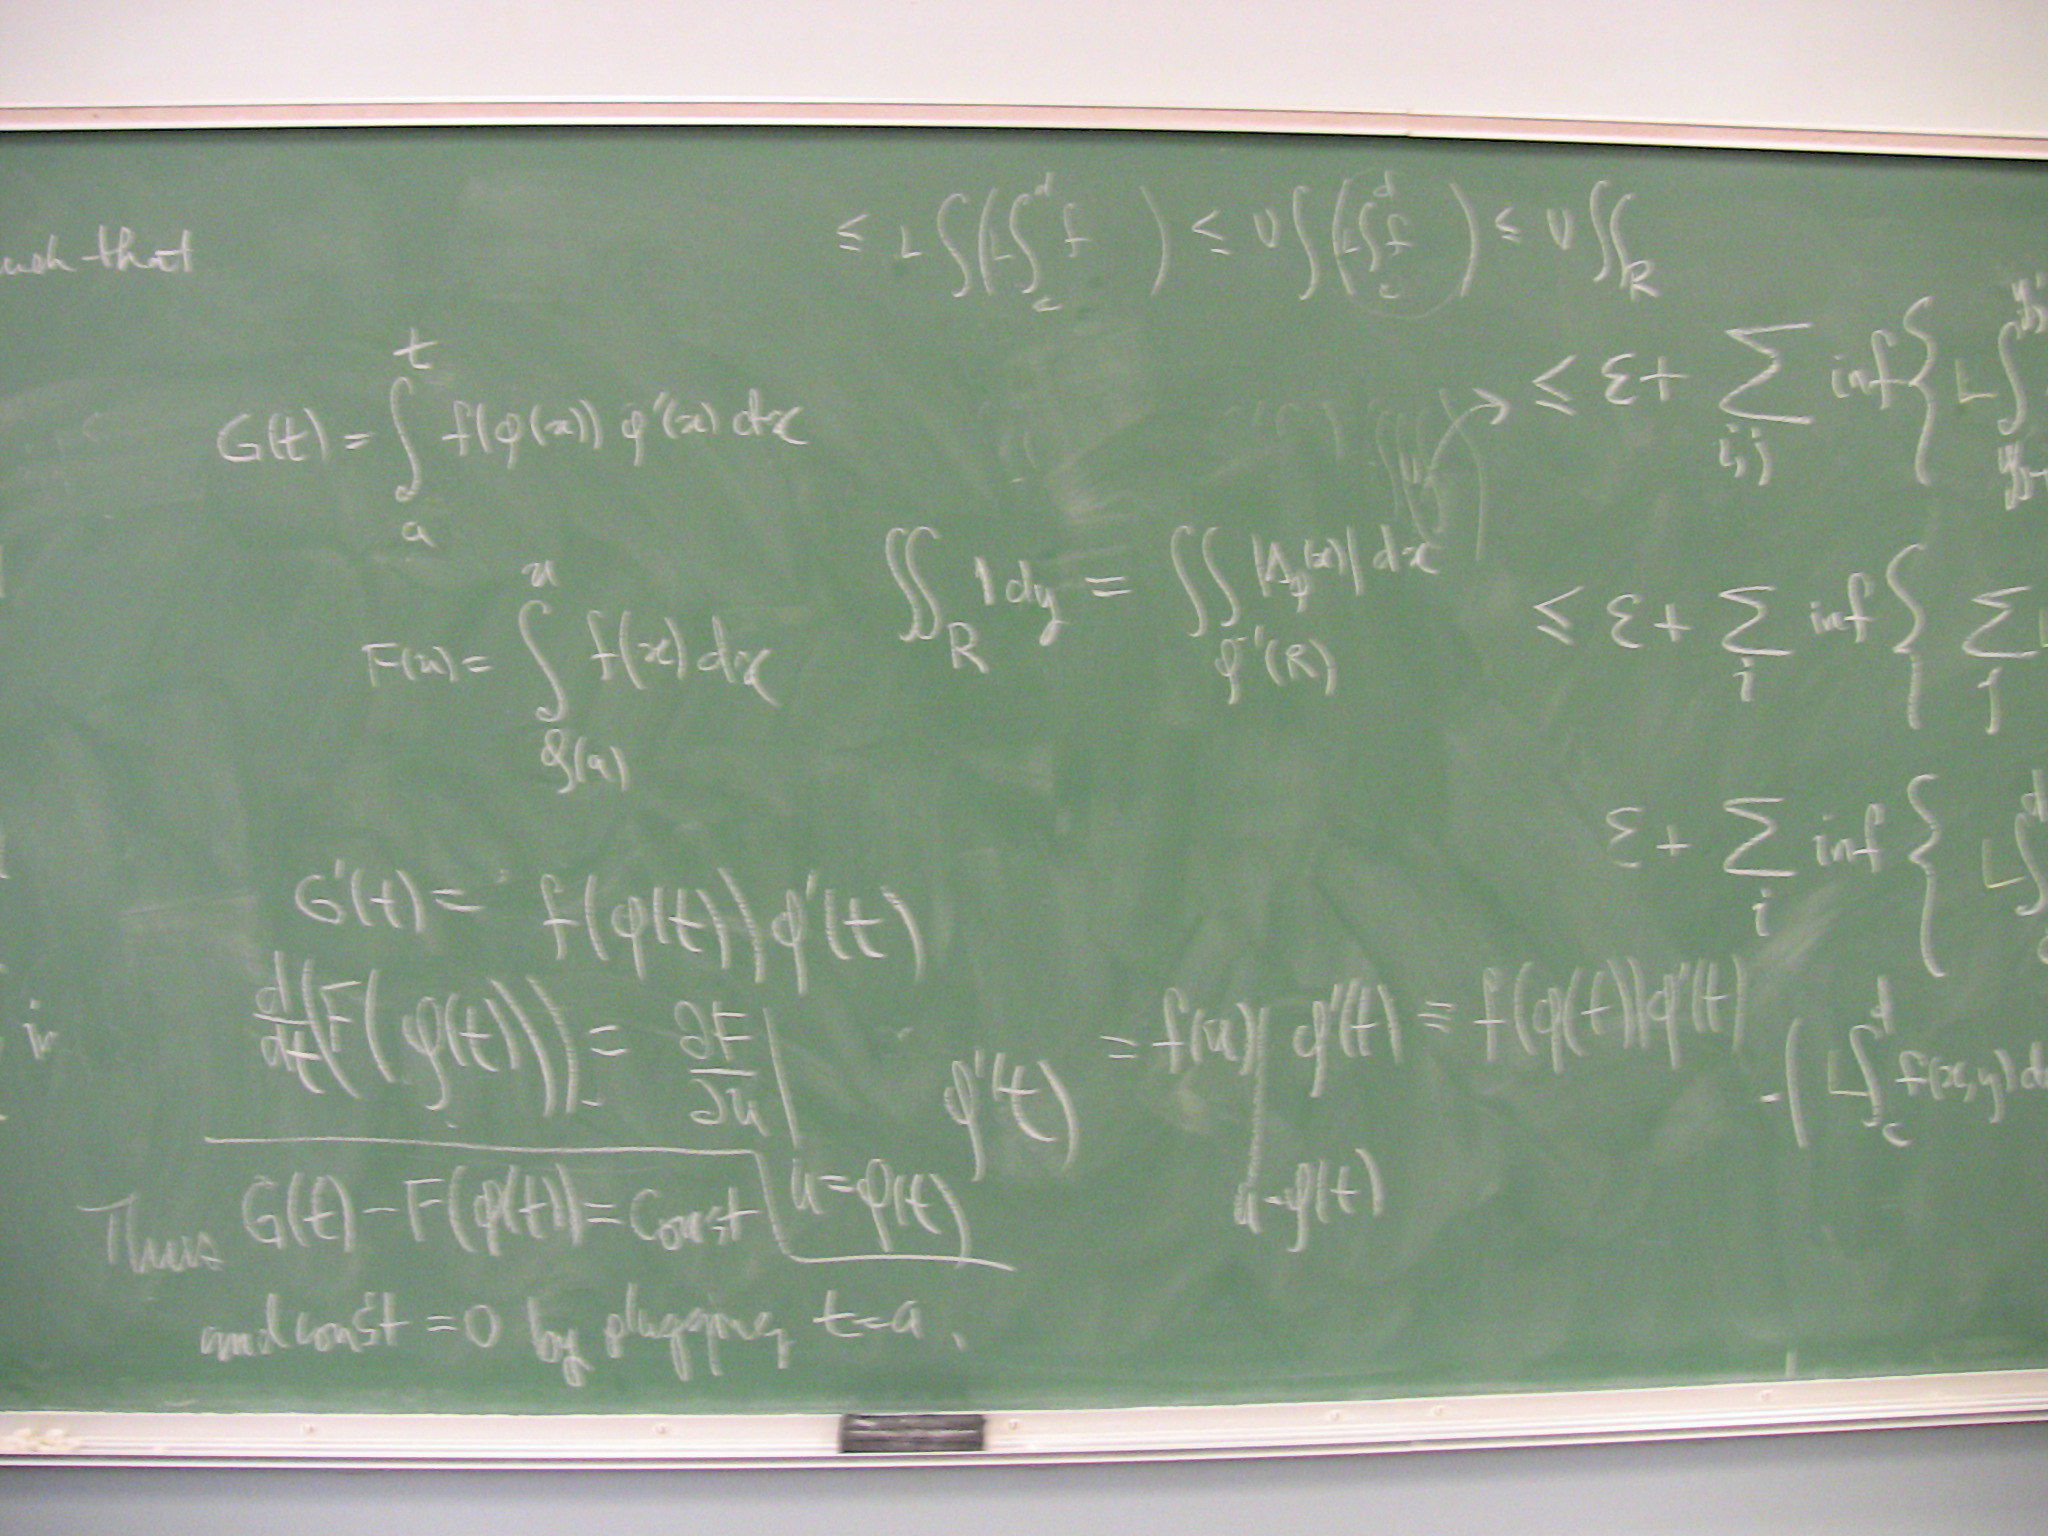 such that
≤ L∫(L∫_c^d f ) ≤ U∫(L∫_c^d f ) ≤ U∬_R
G(t) = ∫_a^t f(φ(x)) φ'(x) dx
F(u) = ∫_{φ(a)}^u f(x) dx
∬_R 1 dy = ∬_{φ^{-1}(R)} |Δ_φ(x)| dx
≤ ε + ∑_{i,j} inf { L∫
≤ ε + ∑_i inf { ∑_j L
ε + ∑_i inf { L∫^d
G'(t) = f(φ(t)) φ'(t)
d/dt (F(φ(t))) = ∂F/∂u |_{u=φ(t)} φ'(t) = f(u)|_{u=φ(t)} φ'(t) = f(φ(t)) φ'(t)
-( L∫_c^d f(x,y) d
in
Thus G(t) - F(φ(t)) = Const
and const = 0 by plugging t=a.